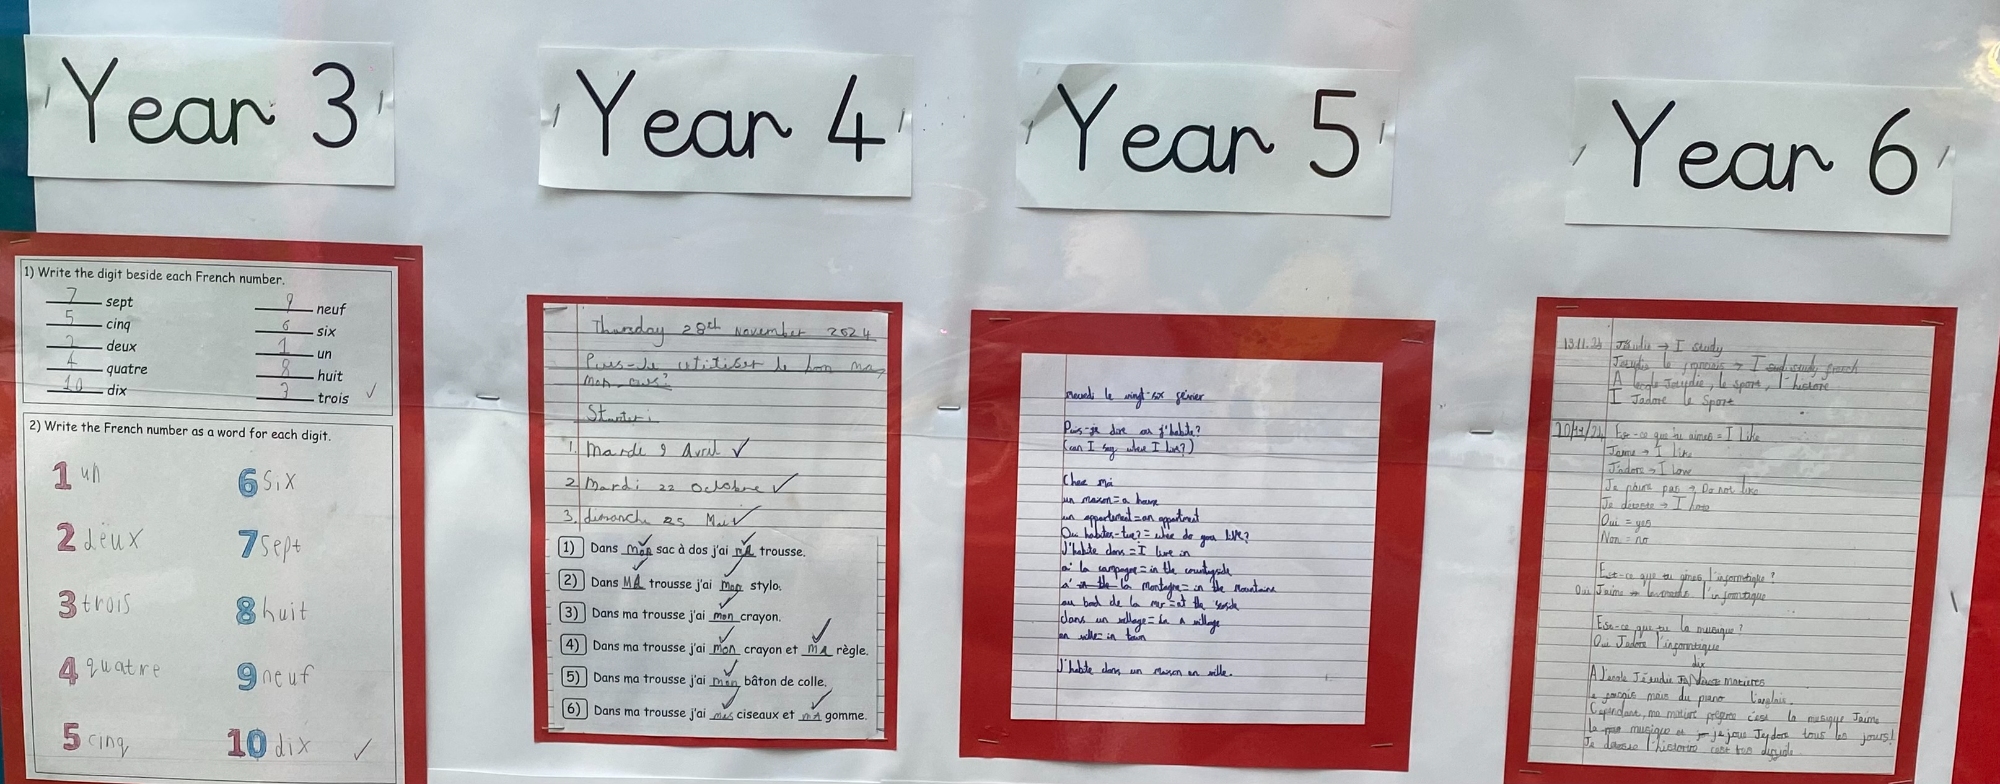 Year 3
1) Write the digit beside each French number.
7 sept
5 cinq
2 deux
4 quatre
10 dix
9 neuf
6 six
1 un
8 huit
3 trois
2) Write the French number as a word for each digit.
1 un
2 deux
3 trois
4 quatre
5 cinq
6 six
7 sept
8 huit
9 neuf
10 dix
Year 4
Thursday 28th November 2024
le bon
Starter:
1. Mardi 9 Avril
2. Mardi 22 Octobre
3. dimanche 25 Mai
1) Dans mon sac à dos j'ai ma trousse.
2) Dans MA trousse j'ai mon stylo.
3) Dans ma trousse j'ai mon crayon.
4) Dans ma trousse j'ai mon crayon et MA règle.
5) Dans ma trousse j'ai mon bâton de colle.
6) Dans ma trousse j'ai mes ciseaux et mA gomme.
Year 5
le vingt-six
Puis-je dire où j'habite?
(can I say where I live?)
Chez moi
un maison = a house
un appartement = an
= where do you live?
J'habite dans = I live in
a' la campagne = in the countryside
la montagne = in the
au bord de la mer = at the seaside
dans un village = in A village
en ville = in town
J'habite dans un maison en ville.
Year 6
→ I study
le → I study french
le sport,
I J'adore le Sport
Est-ce que tu aimes = I Like
J'aime → I like
J'adore → I love
pas → Do not like
Je deteste → I hate
Oui = yes
Non = no
Est-ce que tu aimes l'informtique?
Oui J'aime l'informtique
Est-ce que tu la musique?
Oui J'adore
dix
A l'ecole J'étudie matieres
mais du piano l'anglais.
c'est la musique J'aime
la musique je joue tous les jours!
Je deteste